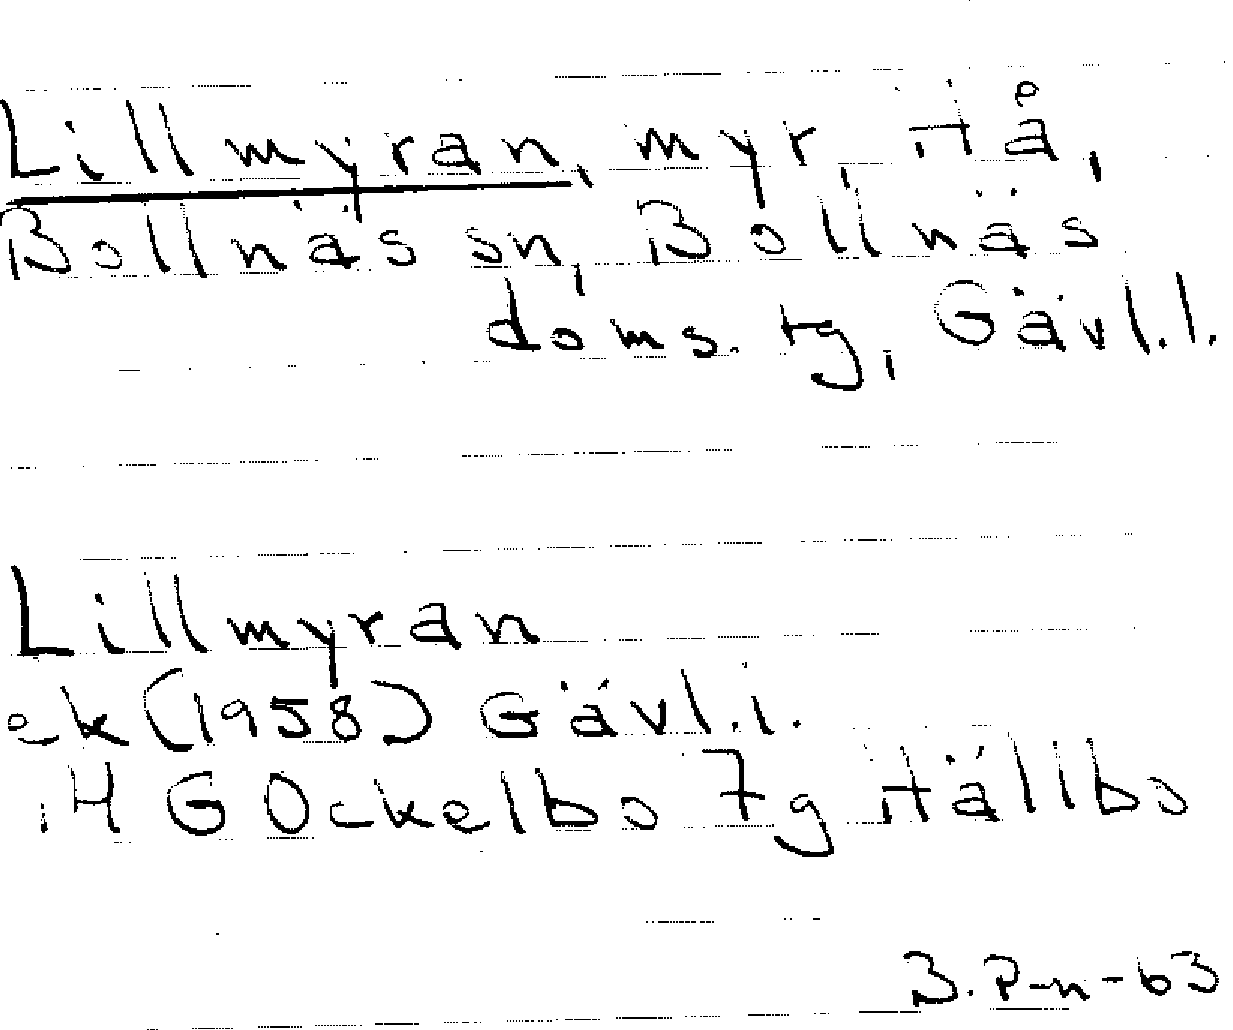 Lillmyran, myr, Hå,
Bollnäs sn, Bollnäs
doms. tg, Gävl.l.
Lillmyran
ek (1958) Gävl.l.
14 G Ockelbo 7g Hällbo
B. P-n-63